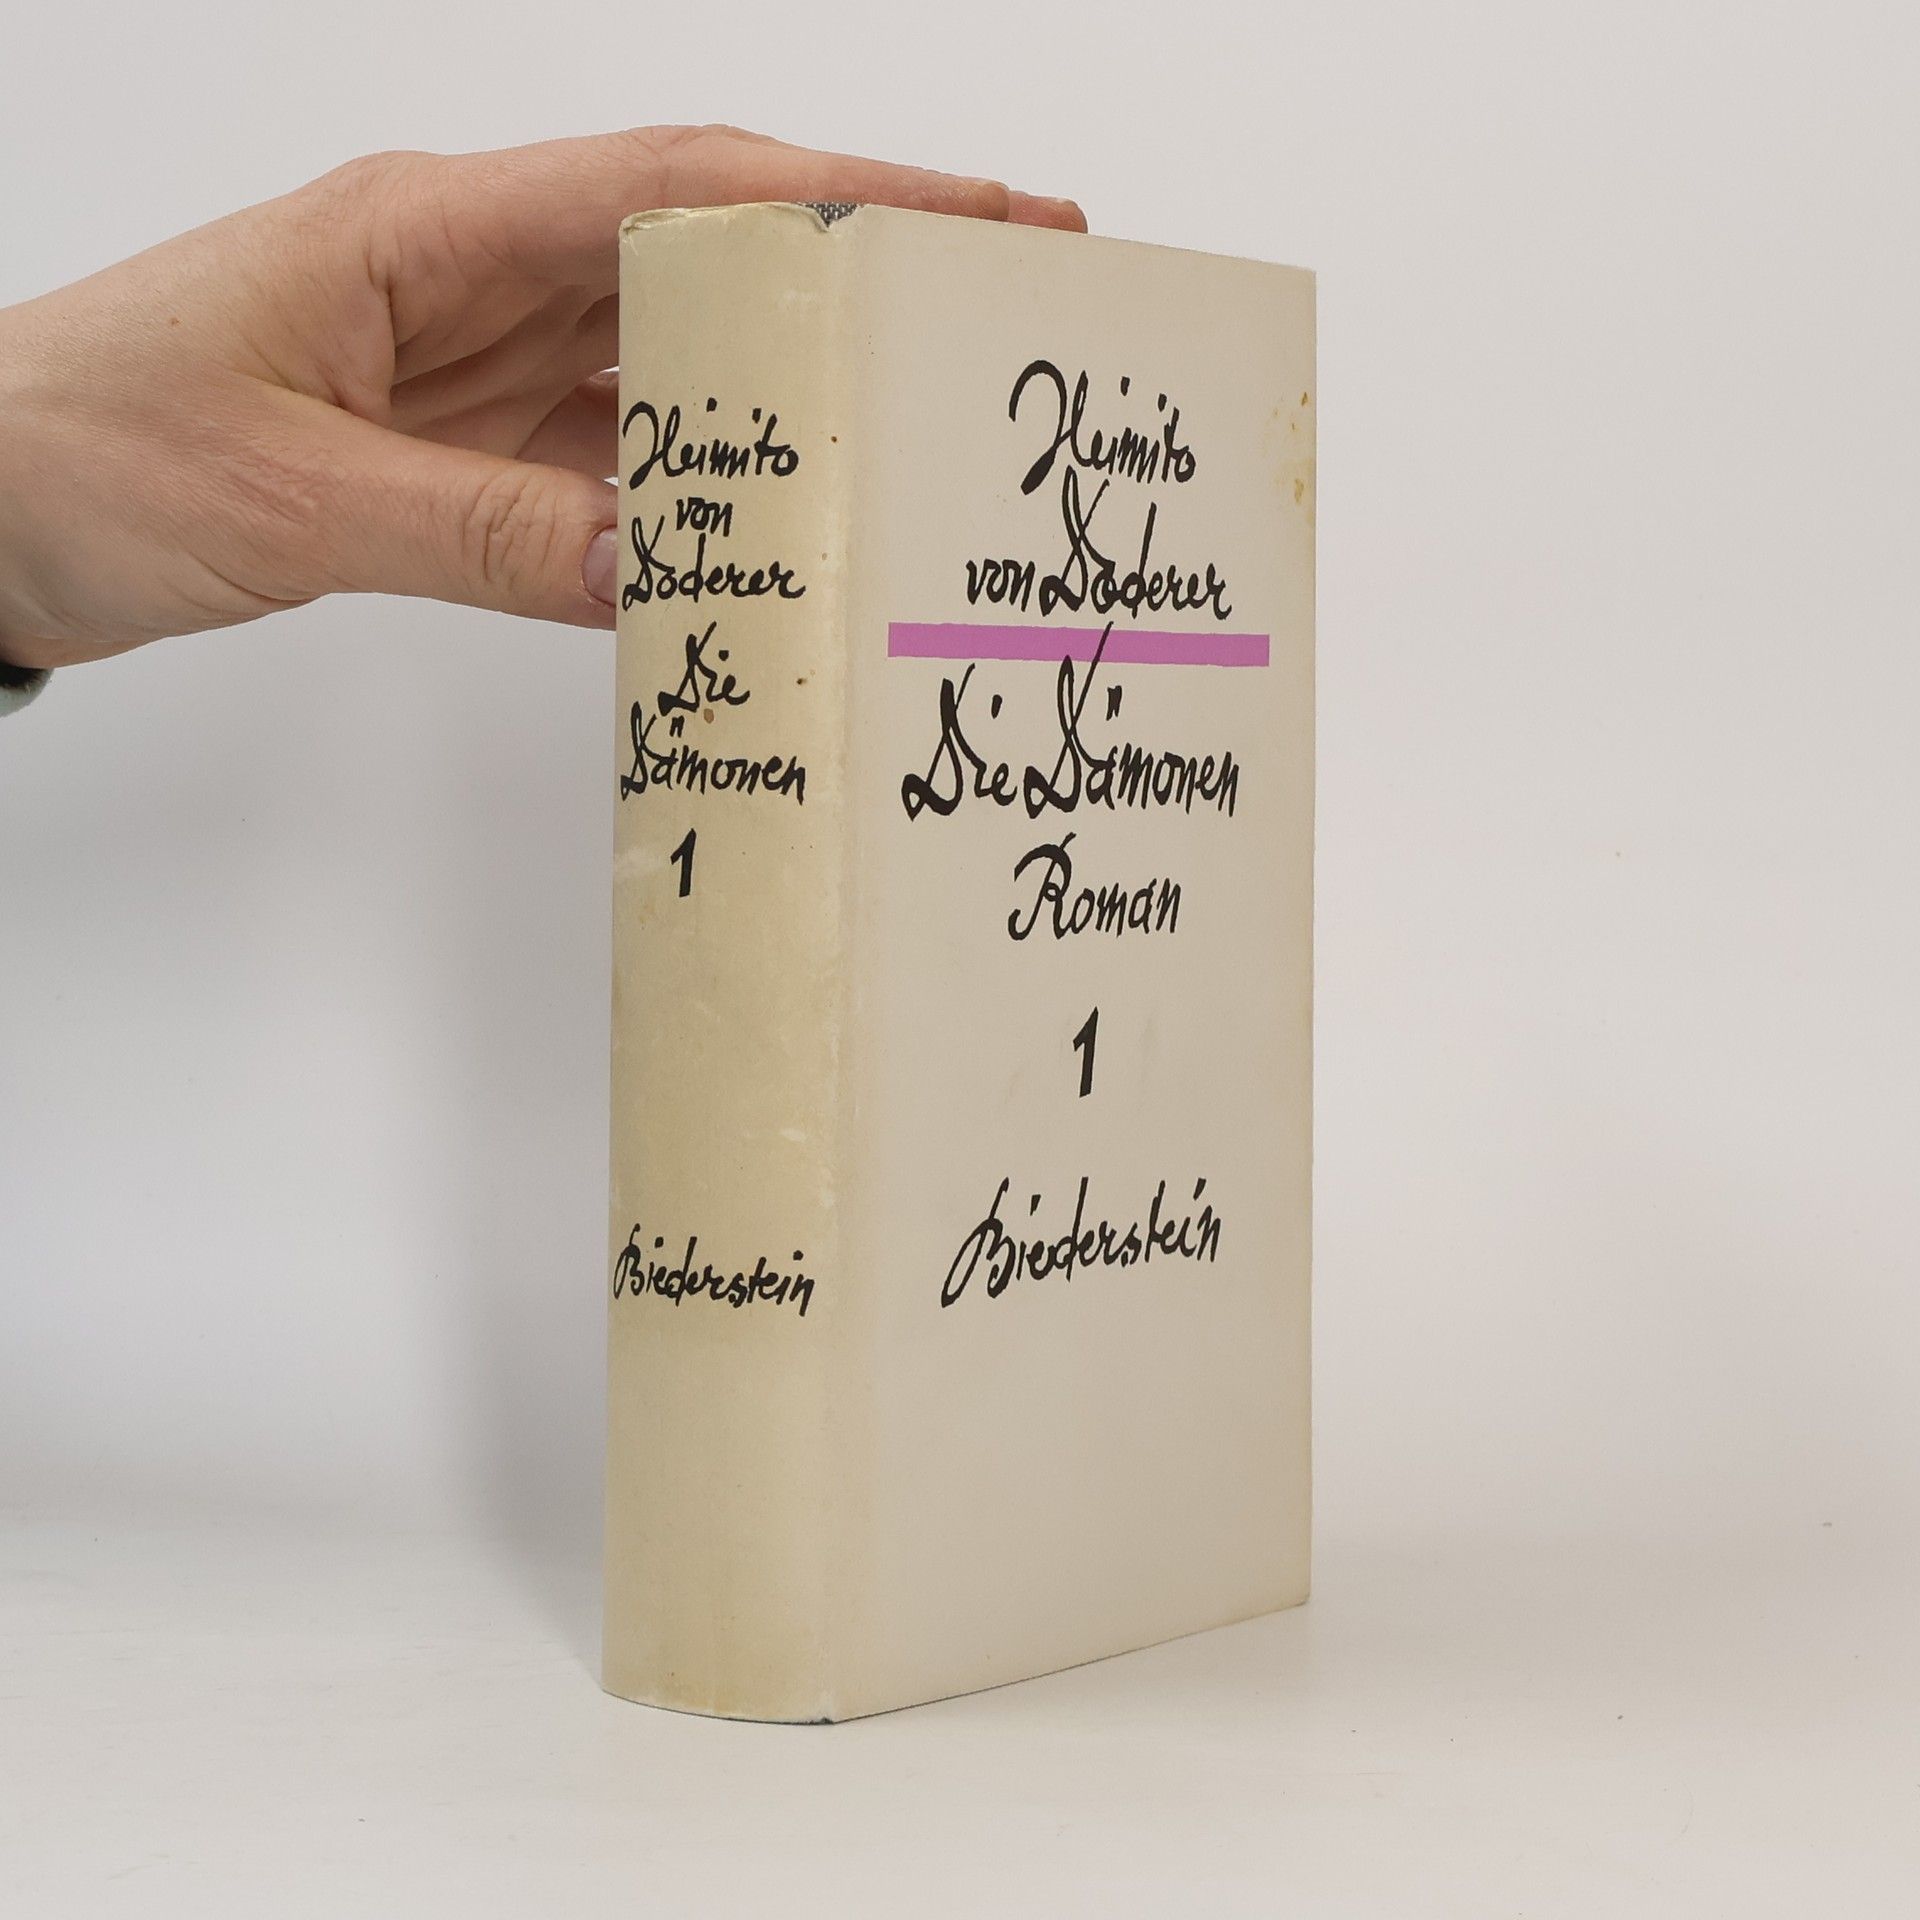 Heimito
von
Doderer
Die
Dämonen
1
Biederstein
Heimito
von Doderer
Die Dämonen
Roman
1
Biederstein